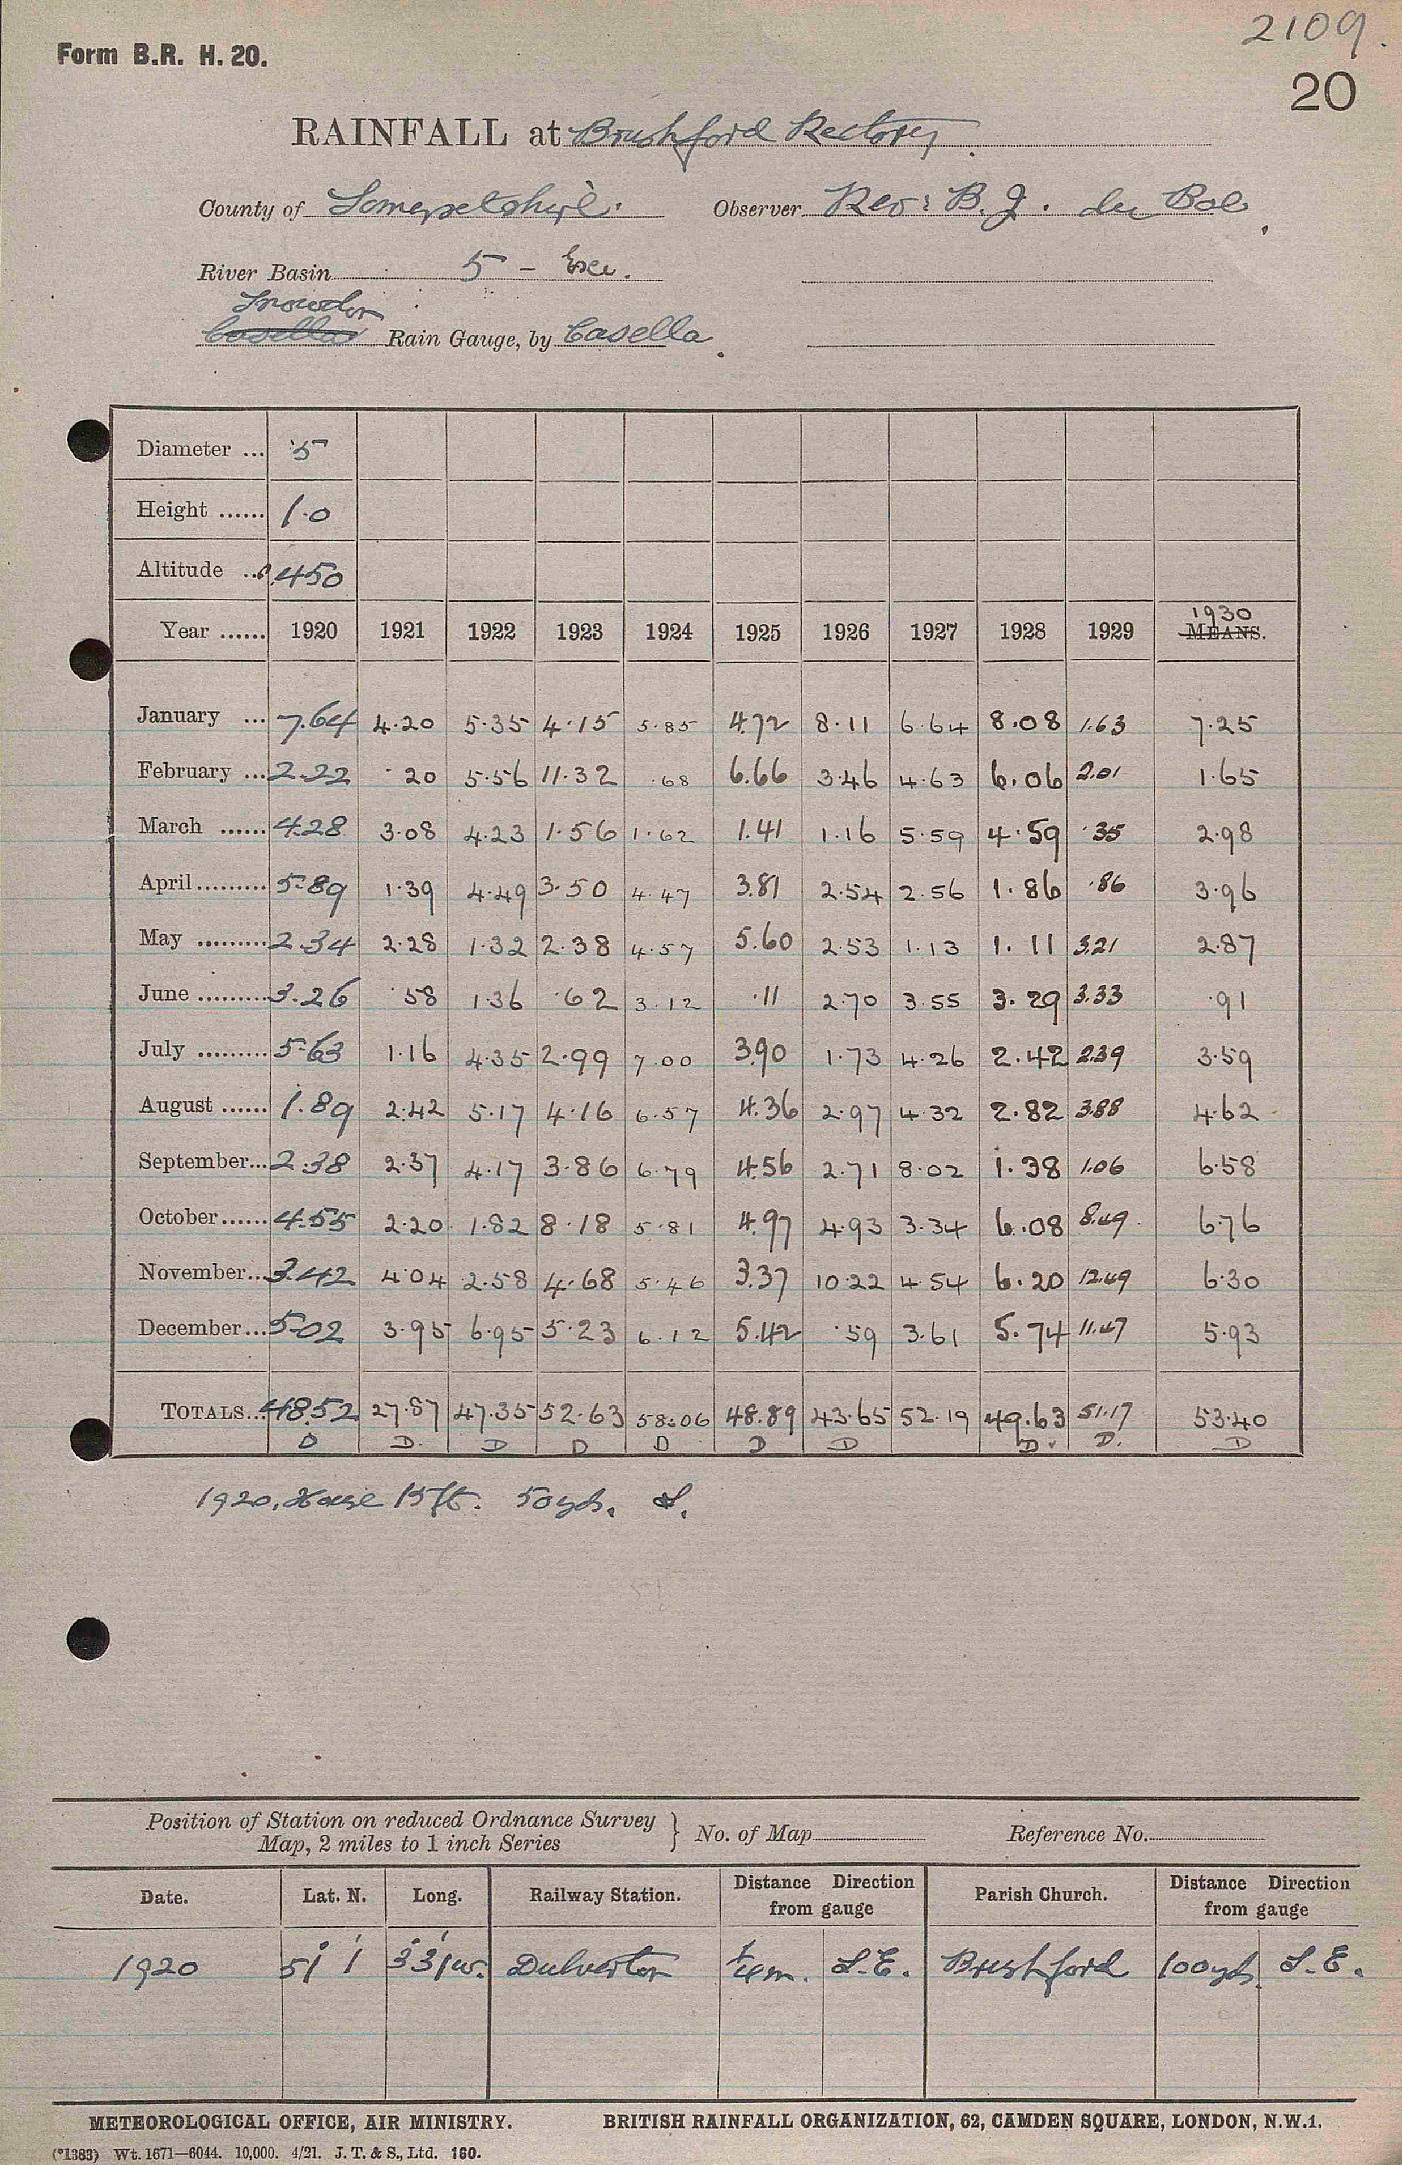 2109.
Form B.R. H. 20.
20
RAINFALL at Brushford Rectory.
County of Somersetshire. Observer Rev: B. J. du Boe.
River Basin 5 - Exe.
Snowdon
Casella Rain Gauge, by Casella.
Diameter ... 5
Height ...... 1.0
Altitude ... 450
1930
Year ...... 1920 1921 1922 1923 1924 1925 1926 1927 1928 1929 MEANS.
January ... 7.64 4.20 5.35 4.15 5.85 4.72 8.11 6.64 8.08 1.63 7.25
February ... 2.22 .20 5.56 11.32 .68 6.66 3.46 4.63 6.06 2.01 1.65
March ...... 4.28 3.08 4.23 1.56 1.62 1.41 1.16 5.59 4.59 .35 2.98
April ......... 5.89 1.39 4.49 3.50 4.47 3.81 2.54 2.56 1.86 .86 3.96
May ......... 2.34 2.28 1.32 2.38 4.57 5.60 2.53 1.13 1.11 3.21 2.87
June ......... 3.26 .58 1.36 .62 3.12 .11 2.70 3.55 3.29 3.33 .91
July ......... 5.63 1.16 4.35 2.99 7.00 3.90 1.73 4.26 2.42 2.39 3.59
August ...... 1.89 2.42 5.17 4.16 6.57 4.36 2.97 4.32 2.82 3.88 4.62
September... 2.38 2.37 4.17 3.86 6.79 4.56 2.71 8.02 1.38 1.06 6.58
October ...... 4.55 2.20 1.82 8.18 5.81 4.97 4.93 3.34 6.08 8.49 6.76
November... 3.42 4.04 2.58 4.68 5.46 3.37 10.22 4.54 6.20 12.49 6.30
December ... 5.02 3.95 6.95 5.23 6.12 5.42 .59 3.61 5.74 11.47 5.93
TOTALS... 48.52 27.87 47.35 52.63 58.06 48.89 43.65 52.19 49.63 51.17 53.40
D D. D D D D D D. D. D
1920, House 15 ft. 50 yds. S.
Position of Station on reduced Ordnance Survey
Map, 2 miles to 1 inch Series } No. of Map Reference No.
Date. Lat. N. Long. Railway Station. Distance Direction from gauge Parish Church. Distance Direction from gauge
1920 51° 1' 3° 31' w. Dulverton 1/4 m. S.E. Brushford 100 yds. S.E.
METEOROLOGICAL OFFICE, AIR MINISTRY. BRITISH RAINFALL ORGANIZATION, 62, CAMDEN SQUARE, LONDON, N.W.1.
(*1383) Wt. 1671—6044. 10,000. 4/21. J. T. & S., Ltd. 160.